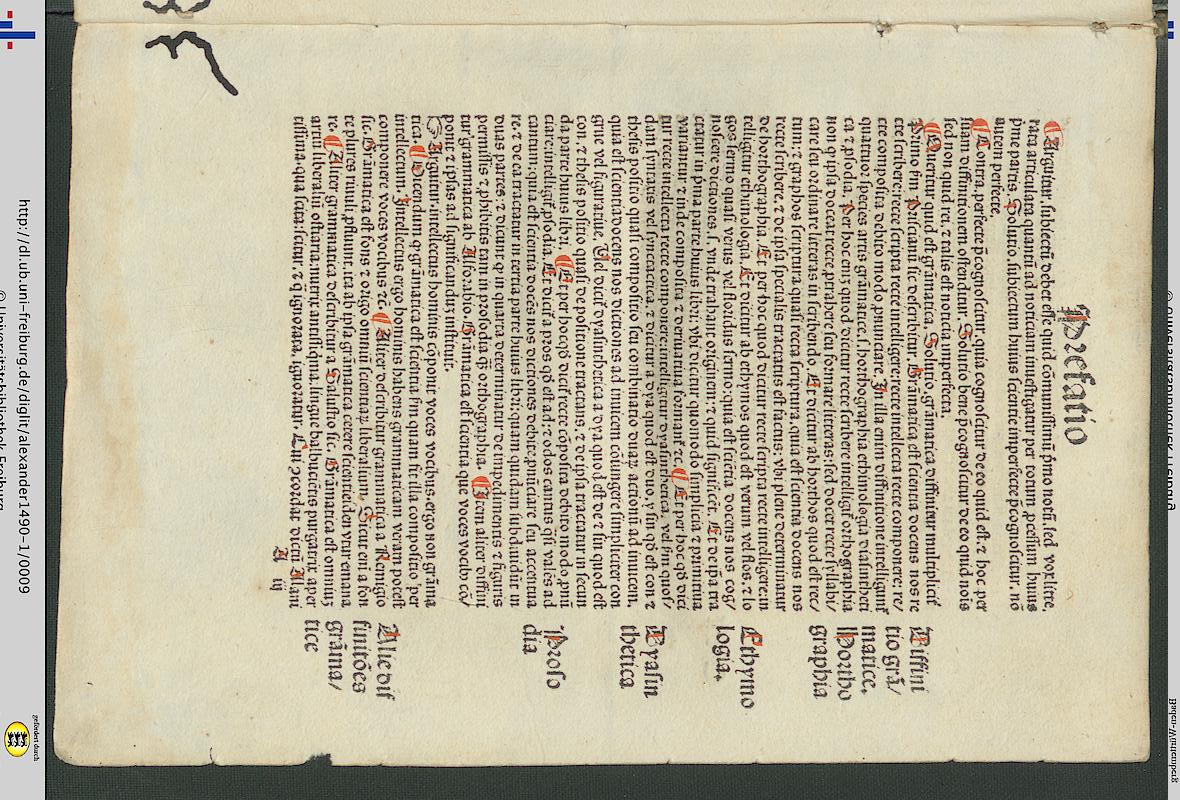 Prefatio
¶ Arguitur. subiectū debet esse quid cōmunissimū p̄mo notū. sed vox littera,
rata articulata quantū ad noticiam inuestigatur per totum processum huius
p̄me partis. Solutio. subiectum huius scientie imperfecte p̄cognoscitur. nō
autem perfecte.
¶ Contra. perfecte p̄cognoscitur. quia cognoscitur de eo quid est. ⁊ hoc per
suam diffinitionem. ostenditur. Solutio bene p̄cognoscitur de eo quid nois
sed non quid rei. ⁊ talis est noticia imperfecta.
¶ Queritur quid est grāmatica. Solutio. grāmatica diffinitur multiplicit̄
Primo fm̄ Priscianū sic describitur. Grāmatica est scientia docens nos re
cte scribere: recte scripta recte intelligere: recte intellecta recte componere: re/
cte composita debito modo pnunciare. In illa enim diffinitione intelligunt̄
quatuor species artis grāmatice. s. horthographia ethimologia diasintheti
ca ⁊ psodia. Per hoc eniz quod dicitur recte scribere intelligit̄ orthographia
non qꝫ ipsa doceat recte ptrahere seu formare litteras: sed docet recte syllabi/
care seu ordinare litteras in scribendo. Et dicitur ab horthos quod est rec/
tum: ⁊ graphos scriptura quasi recta scriptura. quia est scientia docens nos
recte scribere. ⁊ de ipsa specialis tractatus est factus: vbi plene determinatur
de horthographia. Et per hoc quod dicitur recte scripta recte intelligere. in
telligitur ethimologia. Et dicitur ab ethymos quod est verum vel flos. ⁊ lo
gos sermo quasi verus vel floridus sermo: quia est sciētia docens nos cog/
noscere dictiones. s. vnde trahant originem: ⁊ quid significēt. Et de ipsa tra
ctatur in p̄ma parte huius libri: vbi docetur quomodo simplicia ⁊ primitiua
variantur. ⁊ inde composita ⁊ deriuatiua formant̄ ⁊c. ¶ Et per hoc qd̄ dici
tur recte intellecta recte componere. intelligitur dyasinthetica. vel fm̄ quos/
dam syntaxis vel syntactica. ⁊ dicitur a dya quod est duo. ⁊ sin qd̄ est con ⁊
thesis positio quasi compositio seu combinatio duaꝝ actionū ad inuicem.
quia est scientia docens nos dictiones ad inuicem cōiungere simpliciter con
grue vel figuratiue. Vel dicit̄ dyasinthetica a dya quod est de ⁊ sin quod est
con. ⁊ thesis positio quasi de positione constructionis tractans. ⁊ de ipsa in secun
da parte huius libri. ¶ Et per hoc qd̄ dicit̄ recte cōposita debito modo. pnū
ciare. intelligit̄ psodia. Et dicit̄ a pros qd̄ est ad: ⁊ odos cantus q̄si valēs ad
cantum: quia est sciētia docēs nos dictiones debite. pnūciare seu accentua
re. ⁊ de ea tractatur in tertia parte huius libri: quam quidam subdiuidūt in
duas partes. ⁊ dicunt qꝫ in quarta determinatur de impedimentis ⁊ figuris
permissis ⁊ phibitis tam in prosodia qꝫ orthographia. ¶ Item aliter diffini
tur grammatica ab Alforabio. Grāmatica est scientia. que voces vocibꝰ cō/
ponit ⁊ ipsas ad significanduꝫ instituit.
Arguitur. intellectus hominis cōponit voces vocibus. ergo non grāma
tica. ¶ Dicendum qꝫ grāmatica est scientia fm̄ quam fit illa compositio per
intellectum. Intellectus ergo hominis habens grammaticam veram potest
componere voces vocibus ⁊c. ¶ Aliter describitur grammatica a Remigio
sic. Grāmatica est fons ⁊ origo omniū scientiaꝝ liberalium. Sicut eni a fon
te plures riuuli pfluunt. ita ab ipsa grāmatica cetere scientie identur emana
re. ¶ Aliter grammatica describitur a Salustio sic. Grāmatica est ceteraꝝ
artiū liberaliū ostiaria. nutrix antiq̄ssima. lingue balbucientis purgatrix aper
tissima. qua scita: scitur. ⁊ q̄ ignorata. ignoratur. Cui p̄cordat dictū Alani
A iij
Diffini
tio grā/
matice.
Hortho
graphia
Ethymo
logia.
Dyasin
thetica
Proso
dia
Alie dif
finitōes
grāma/
tice
http://dl.ub.uni-freiburg.de/diglit/alexander1490-1/0009
© Universitätsbibliothek Freiburg
gefördert durch
Baden-Württemberg